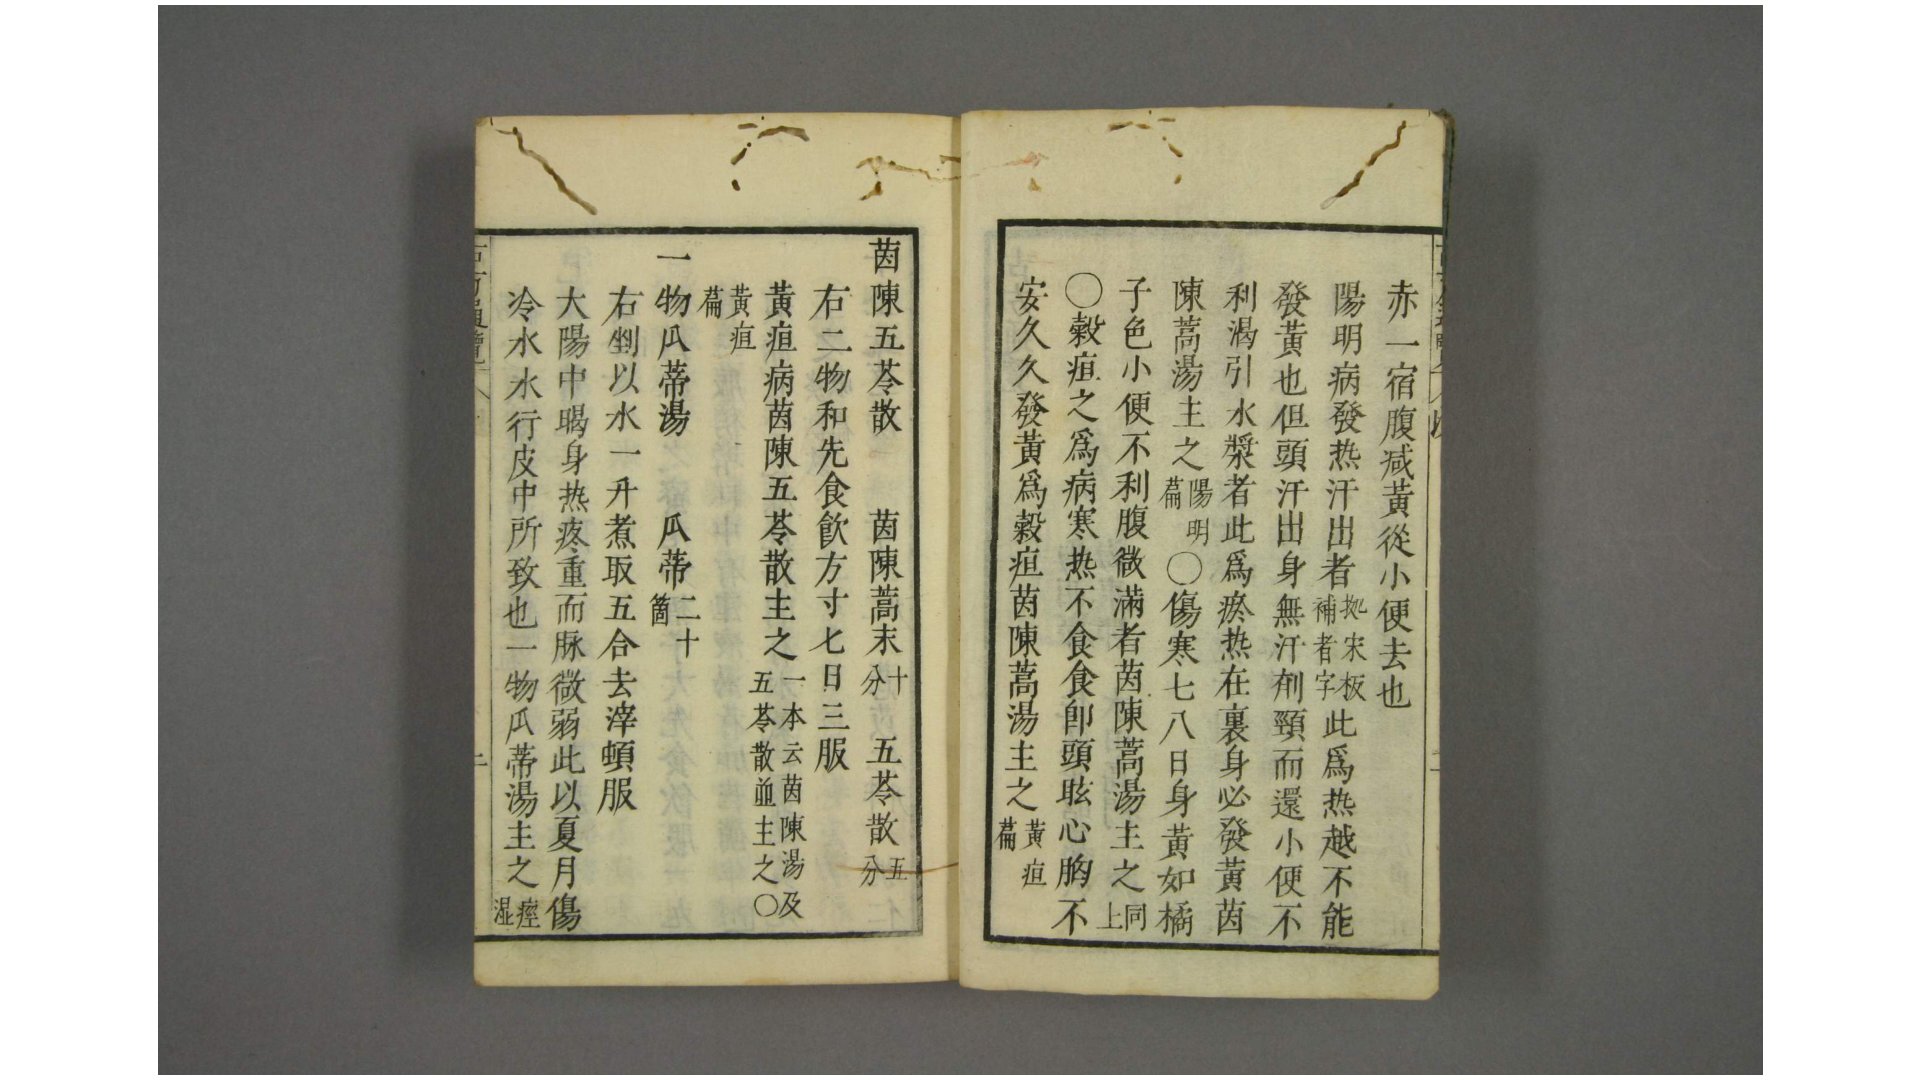 赤一宿腹減黃從小便去也
陽明病發热汗出者拠宋板補者字此爲热越不能
發黃也但頭汗出身無汗剤頸而還小便不
利渇引水漿者此爲瘀热在裏身必發黃茵
陳蒿湯主之陽明篇○傷寒七八日身黃如橘
子色小便不利腹微滿者茵陳蒿湯主之同上
○穀疸之爲病寒热不食食卽頭眩心胸不
安久久發黃爲穀疸茵陳蒿湯主之黃疸篇
茵陳五苓散 茵陳蒿末十分 五苓散五分
右二物和先食飮方寸匕日三服
黃疸病茵陳五苓散主之一本云茵陳湯及五苓散並主之○
黃疸篇
一物瓜蒂湯 瓜蒂二十箇
右剉以水一升煮取五合去滓頓服
大陽中暍身热疼重而脉微弱此以夏月傷
冷水水行皮中所致也一物瓜蒂湯主之痙湿